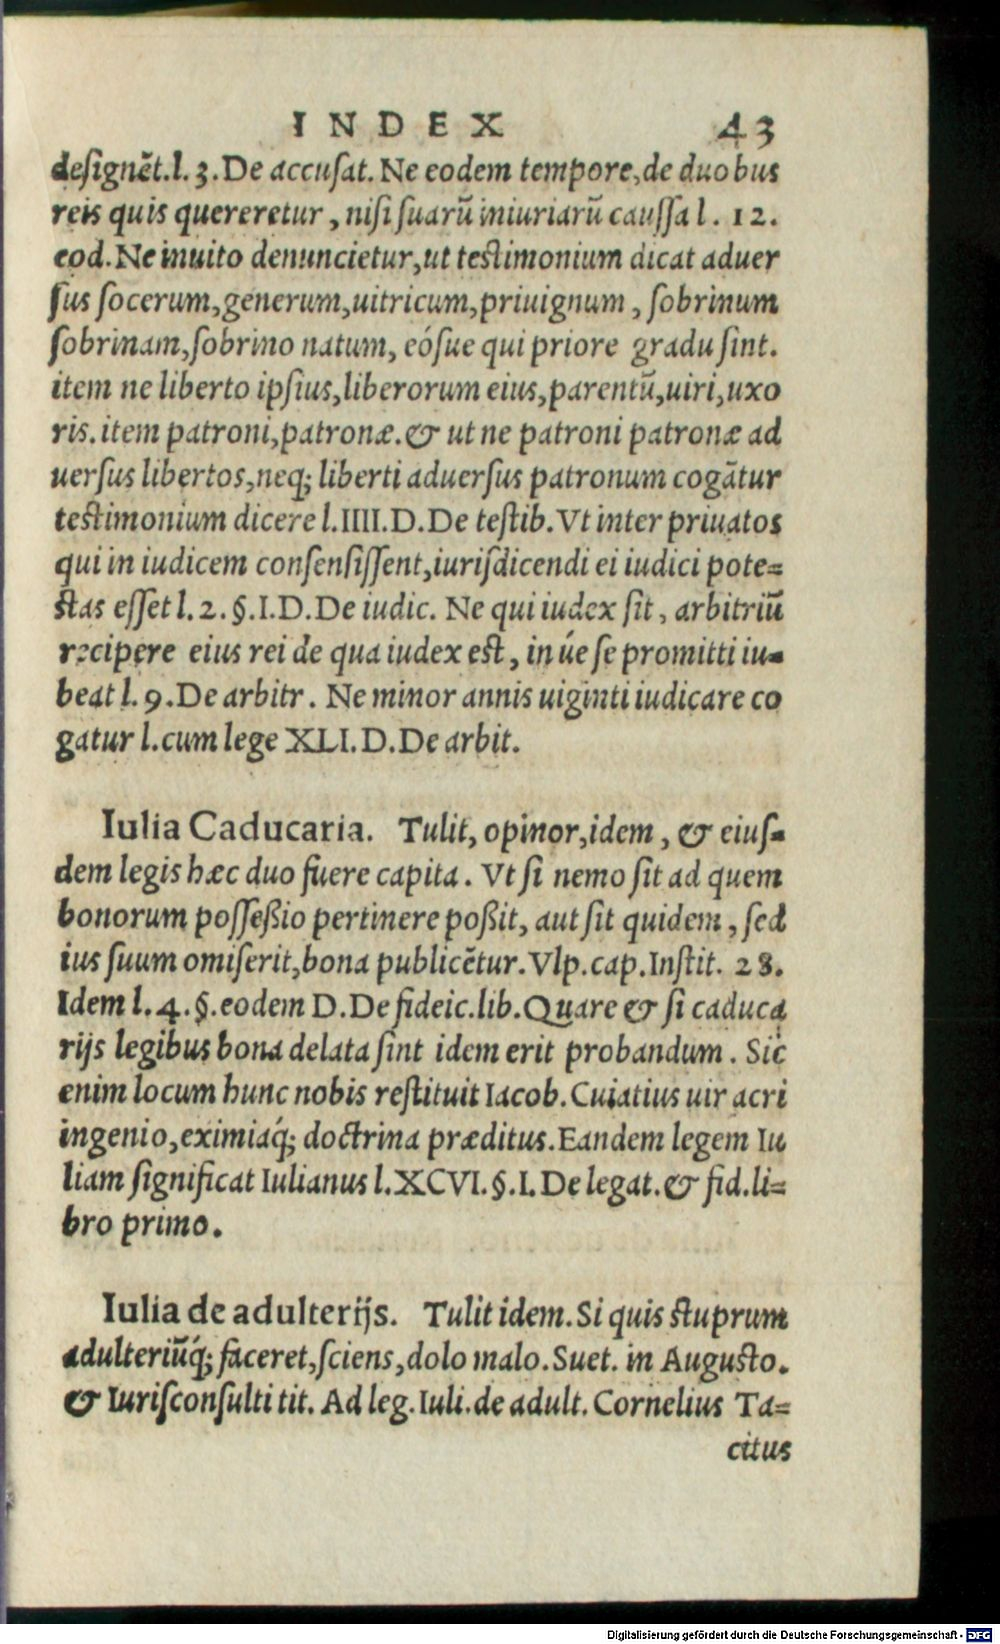 INDEX 43
deſignẽt.l.3.De accuſat. Ne eodem tempore,de duobus
reis quis quereretur, niſi ſuarũ iniuriarũ cauſſa l. 12.
eod. Ne inuito denuncietur,ut teſtimonium dicat aduer
ſus ſocerum,generum,uitricum,priuignum, ſobrinum
ſobrinam,ſobrino natum, eóſue qui priore gradu ſint.
item ne liberto ipſius,liberorum eius,parentũ,uiri,uxo
ris. item patroni,patronæ.& ut ne patroni patronæ ad
uerſus libertos,neq; liberti aduerſus patronum cogãtur
teſtimonium dicere l.IIII.D.De teſtib. Vt inter priuatos
qui in iudicem conſenſiſſent,iuriſdicendi ei iudici pote=
ſtas eſſet l. 2. §.I.D.De iudic. Ne qui iudex ſit, arbitriũ
recipere eius rei de qua iudex eſt, in úe ſe promitti iu=
beat l. 9.De arbitr. Ne minor annis uiginti iudicare co
gatur l.cum lege XLI.D.De arbit.
Iulia Caducaria. Tulit, opinor,idem, & eiuſ=
dem legis hæc duo fuere capita. Vt ſi nemo ſit ad quem
bonorum poſſeßio pertinere poßit, aut ſit quidem, ſed
ius ſuum omiſerit,bona publicẽtur.Vlp.cap.Inſtit. 28.
Idem l.4.§.eodem D.De fideic.lib.Quare & ſi caduca
rijs legibus bona delata ſint idem erit probandum. Sic
enim locum hunc nobis reſtituit Iacob.Cuiatius uir acri
ingenio,eximiaq́; doctrina præditus.Eandem legem Iu
liam ſignificat Iulianus l.XCVI.§.I.De legat.& fid.li=
bro primo.
Iulia de adulterijs. Tulit idem. Si quis ſtuprum
adulteriũq́; faceret,ſciens,dolo malo.Suet. in Auguſto.
& Iuriſconſulti tit. Ad leg.Iuli.de adult. Cornelius Ta=
citus
Digitalisierung gefördert durch die Deutsche Forschungsgemeinschaft - DFG